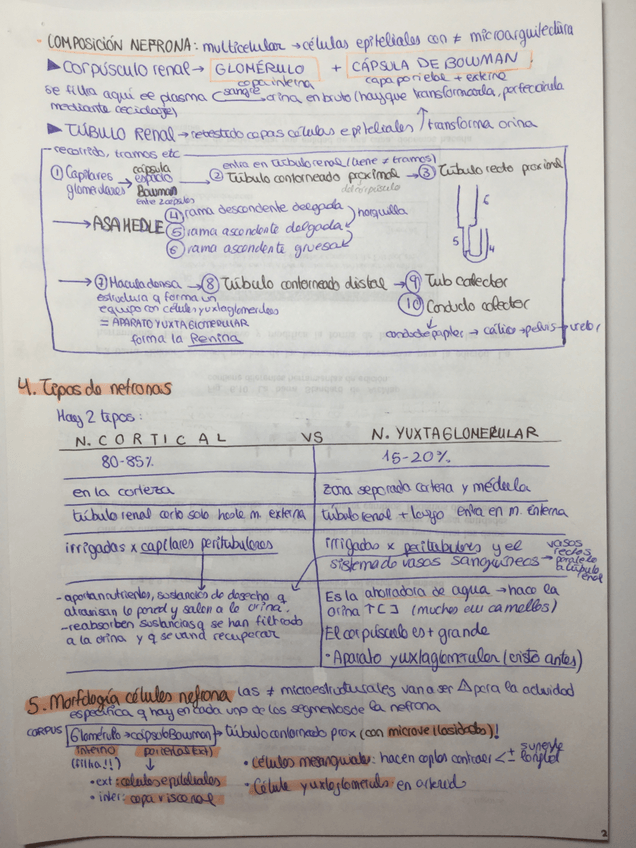 - COMPOSICIÓN NEFRONA: multicelular → células epiteliales con ≠ microarquitectura
▶ Corpúsculo renal → GLOMÉRULO + CÁPSULA DE BOWMAN
capa interna capa parietal + externa
se filtra aquí el plasma sangre orina en bruto (hay que transformarla, perfeccionarla
mediante reciclajes)
▶ TÚBULO Renal → revestido capas células epiteliales / transforma orina
recorrido, tramos etc
① Capilares glomerulares → cápsula espacio Bowman entre 2 capsulas → ② Túbulo contorneado proximal → ③ Túbulo recto proximal
entra en túbulo renal (tiene ≠ tramos)
del corpúsculo
→ ASA HEDLE ④ rama descendente delgada
⑤ rama ascendente delgada
⑥ rama ascendente gruesa
horquilla
6
5 4
→ ⑦ Macula densa → ⑧ Túbulo contorneado distal → ⑨ Tub colector
estructura q forma un
equipo con células yuxtaglomerulares
= APARATO YUXTAGLOMERULAR
forma la Renina
⑩ Conducto colector
conducto papilar → cálices → pelvis → ureter
4. Tipos de nefronas
Hay 2 tipos:
N. CORTICAL VS N. YUXTAGLOMERULAR
80-85% 15-20%
en la corteza zona separada corteza y médula
túbulo renal corto solo hasta m. externa túbulo renal + largo entra en m. interna
irrigadas x capilares peritubulares irrigadas x peritubulares y el
sistema de vasos sanguíneos → vasos rectos paralelo a túbulo renal
- aportan nutrientes, sustancias de desecho q
atraviesan la pared y salen a la orina.
- reabsorben sustancias q se han filtrado
a la orina y q se van a recuperar
Es la ahorradora de agua → hace la
orina ↑[ ] (mucho en camellos)
El corpúsculo es + grande
• Aparato yuxtaglomerular (visto antes)
5. Morfología células nefrona las ≠ microestructuras van a ser △ para la actividad
específica q hay en cada uno de los segmentos de la nefrona
CORPUS Glomérulo → cápsula Bowman → túbulo contorneado prox (con microvellosidades)!
interno parietal (ext)
(filtra!!)
• ext: células epiteliales
• inter: capa visceral
• células mesangiales: hacen capilares contraer < ± superficie longitud
• Célula yuxtaglomerular en arteriola
2